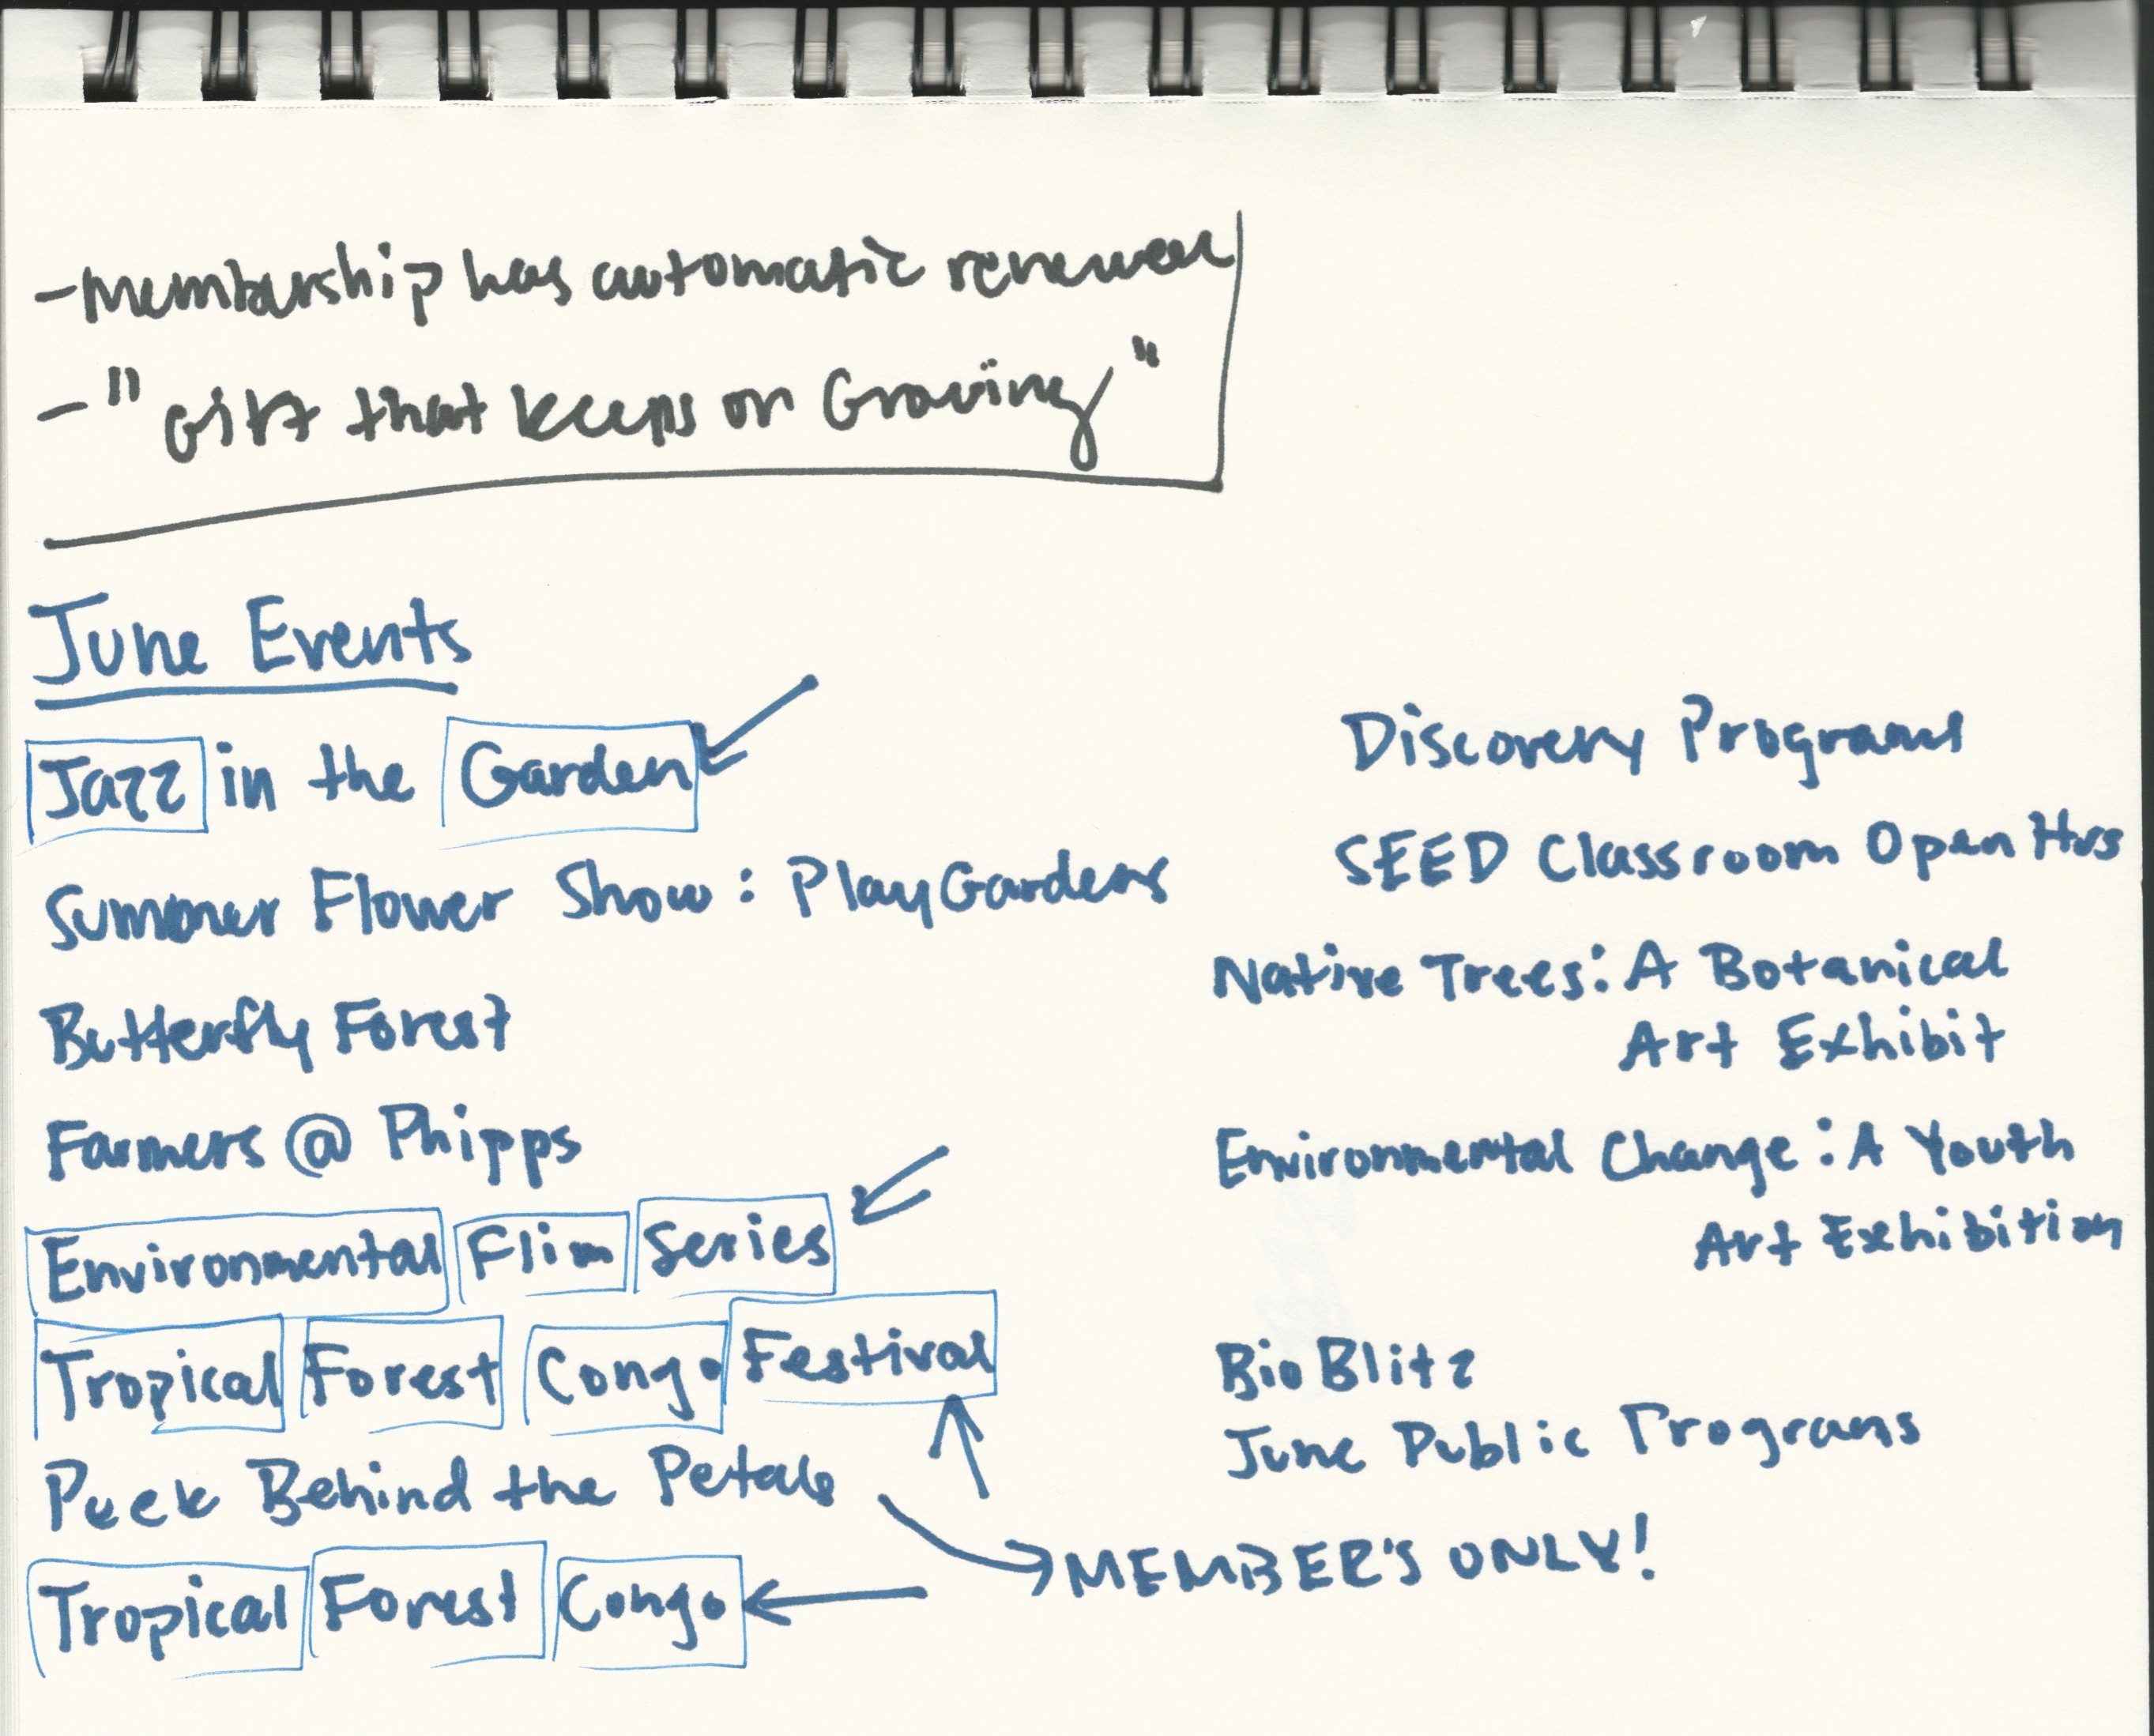 - Membership has automatic renewal
- "Gift that keeps on Growing"
June Events
Jazz in the Garden
Summer Flower Show: PlayGardens
Butterfly Forest
Farmers @ Phipps
Environmental Flim Series
Tropical Forest Congo Festival
Peek Behind the Petals
Tropical Forest Congo
Discovery Programs
SEED Classroom Open Hrs
Native Trees: A Botanical
Art Exhibit
Environmental Change: A Youth
Art Exhibition
BioBlitz
June Public Programs
MEMBER'S ONLY!